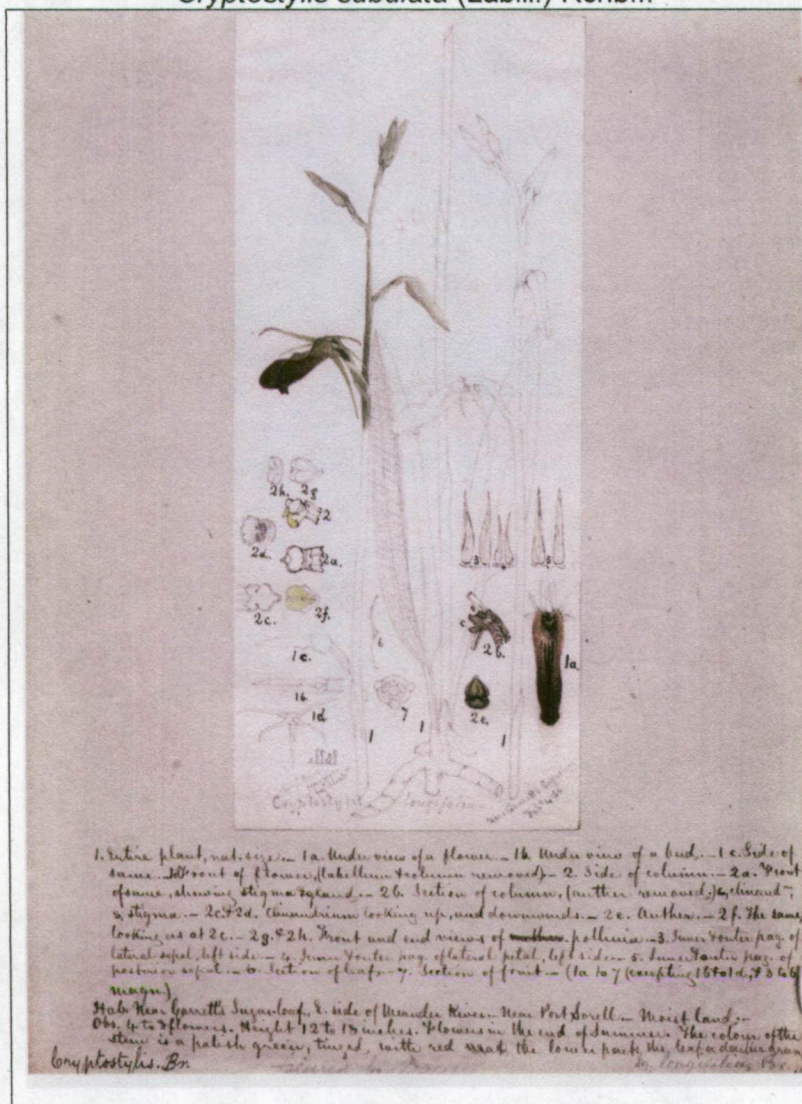 Cryptostylis subulata (Labill.) Rchb.f.
2h. 2g
2
2d. 2a.
2c. 2f.
3 4 5
1c. 6 c 2b. 1a.
1b
1d 7 2e.
1 1 1
Cryptostylis longifolia
1. Entire plant, nat. size. — 1a. Under view of a flower — 1b. Under view of a bud. — 1c. Side of
same — 1d. Front of flower, (labellum & column removed) — 2. Side of column. — 2a. Front
of same, shewing stigma & gland. — 2b. Section of column, (anther removed;) c, clinand—;
s, stigma. — 2c & 2d. Clinandrium looking up, and downwards. — 2e. Anther. — 2f. The same,
looking as at 2c. — 2g. & 2h. Front and end views of pollinia. — 3. Inner & outer pag. of
lateral sepal, left side — 4. Inner & outer pag. of lateral petal, left side. — 5. Inner & outer pag. of
posterior sepal. — 6. Section of leaf. — 7. Section of fruit. — (1a to 7 (excepting 1b to 1d, & 3 to 6)
magn.)
Hab. Near Garrett's Sugarloaf, E. side of Meander River. — Near Port Sorell. — Moist land. —
Obs. 4 to 8 flowers. Height 12 to 18 inches. Flowers in the end of Summer. The colour of the
stem is a palish green, tinged with red at the lower part, the leaf a darker green
Cryptostylis. Br. longifolia Br.